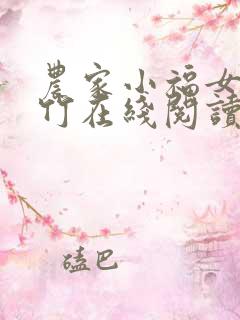 農家小福女
竹在綫閱讀
磕巴